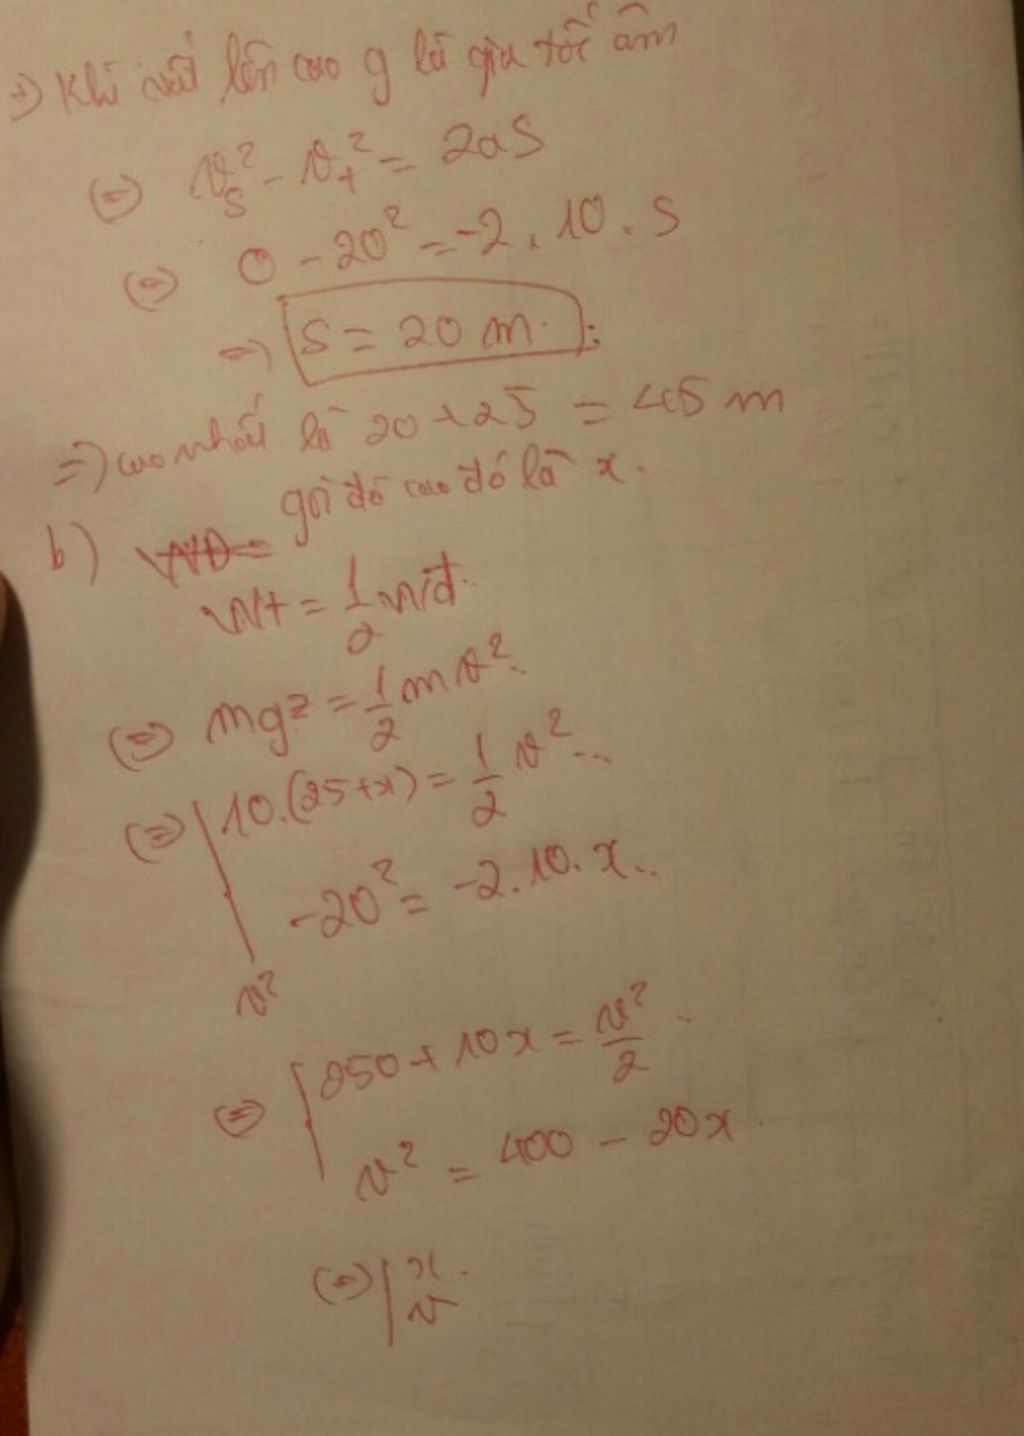 =) Khi vật lên cao g là gia tốc âm
(=) vs² - vt² = 2aS
(=) 0 - 20² = -2. 10. S
=) S = 20 m.
=) cao nhất là 20 + 25 = 45 m
gọi độ cao đó là x.
b)
Wt = 1/2 Wđ.
(=) mgz = 1/2 mv².
(=) 10.(25+x) = 1/2 v²
-20² = -2.10.x
v²
(=) 250 + 10x = v²/2
v² = 400 - 20x
(=) x
v